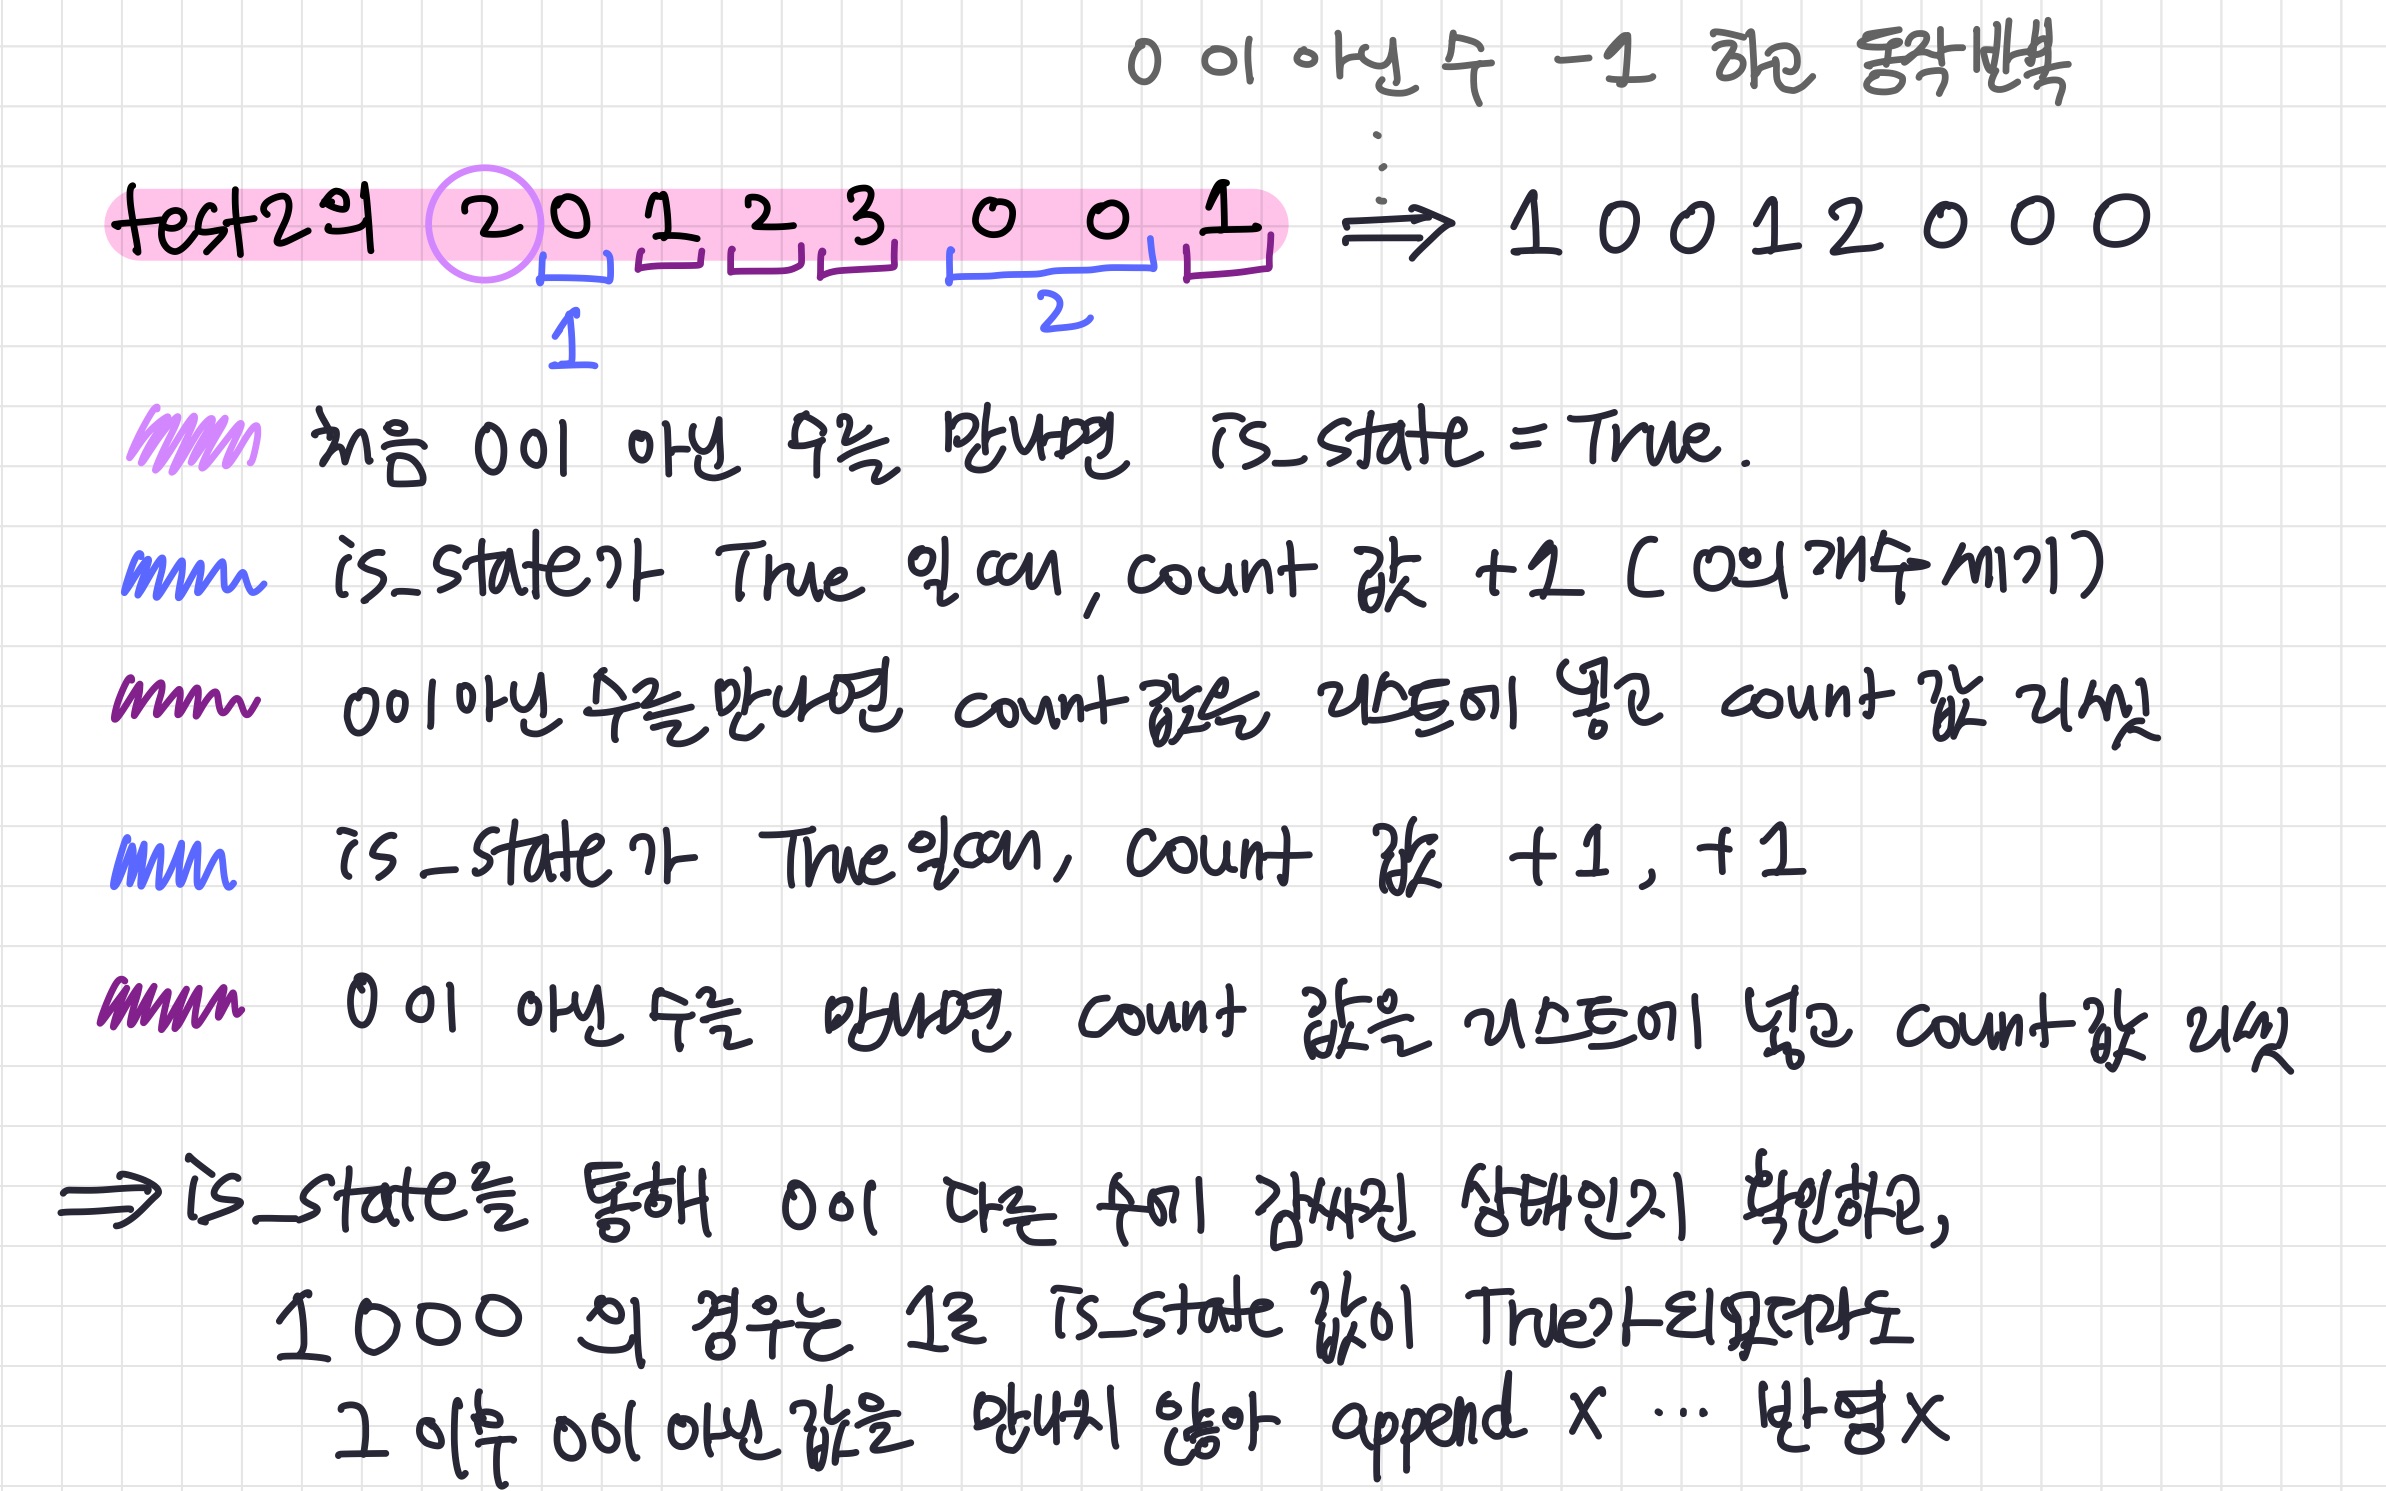 0 이 아닌 수 -1 하고 동작반복
test2의 2 0 1 2 3 0 0 1 ⇒ 1 0 0 1 2 0 0 0
1 2
처음 0이 아닌 수를 만나면 is_state = True.
is_state가 True 임 can, count 값 +1 (0의 개수 세기)
0이 아닌 수를 만나면 count값을 리스트에 넣고 count 값 리셋
is_state가 True임 can, count 값 +1, +1
0이 아닌 수를 만나면 count 값을 리스트에 넣고 count값 리셋
⇒ is_state를 통해 0이 다른 수에 감싸진 상태인지 확인하고,
1 0 0 0 의 경우는 1로 is_state 값이 True가 되었더라도
1 이후 0이 아닌 값을 만나지 않아 append X ... 반영X